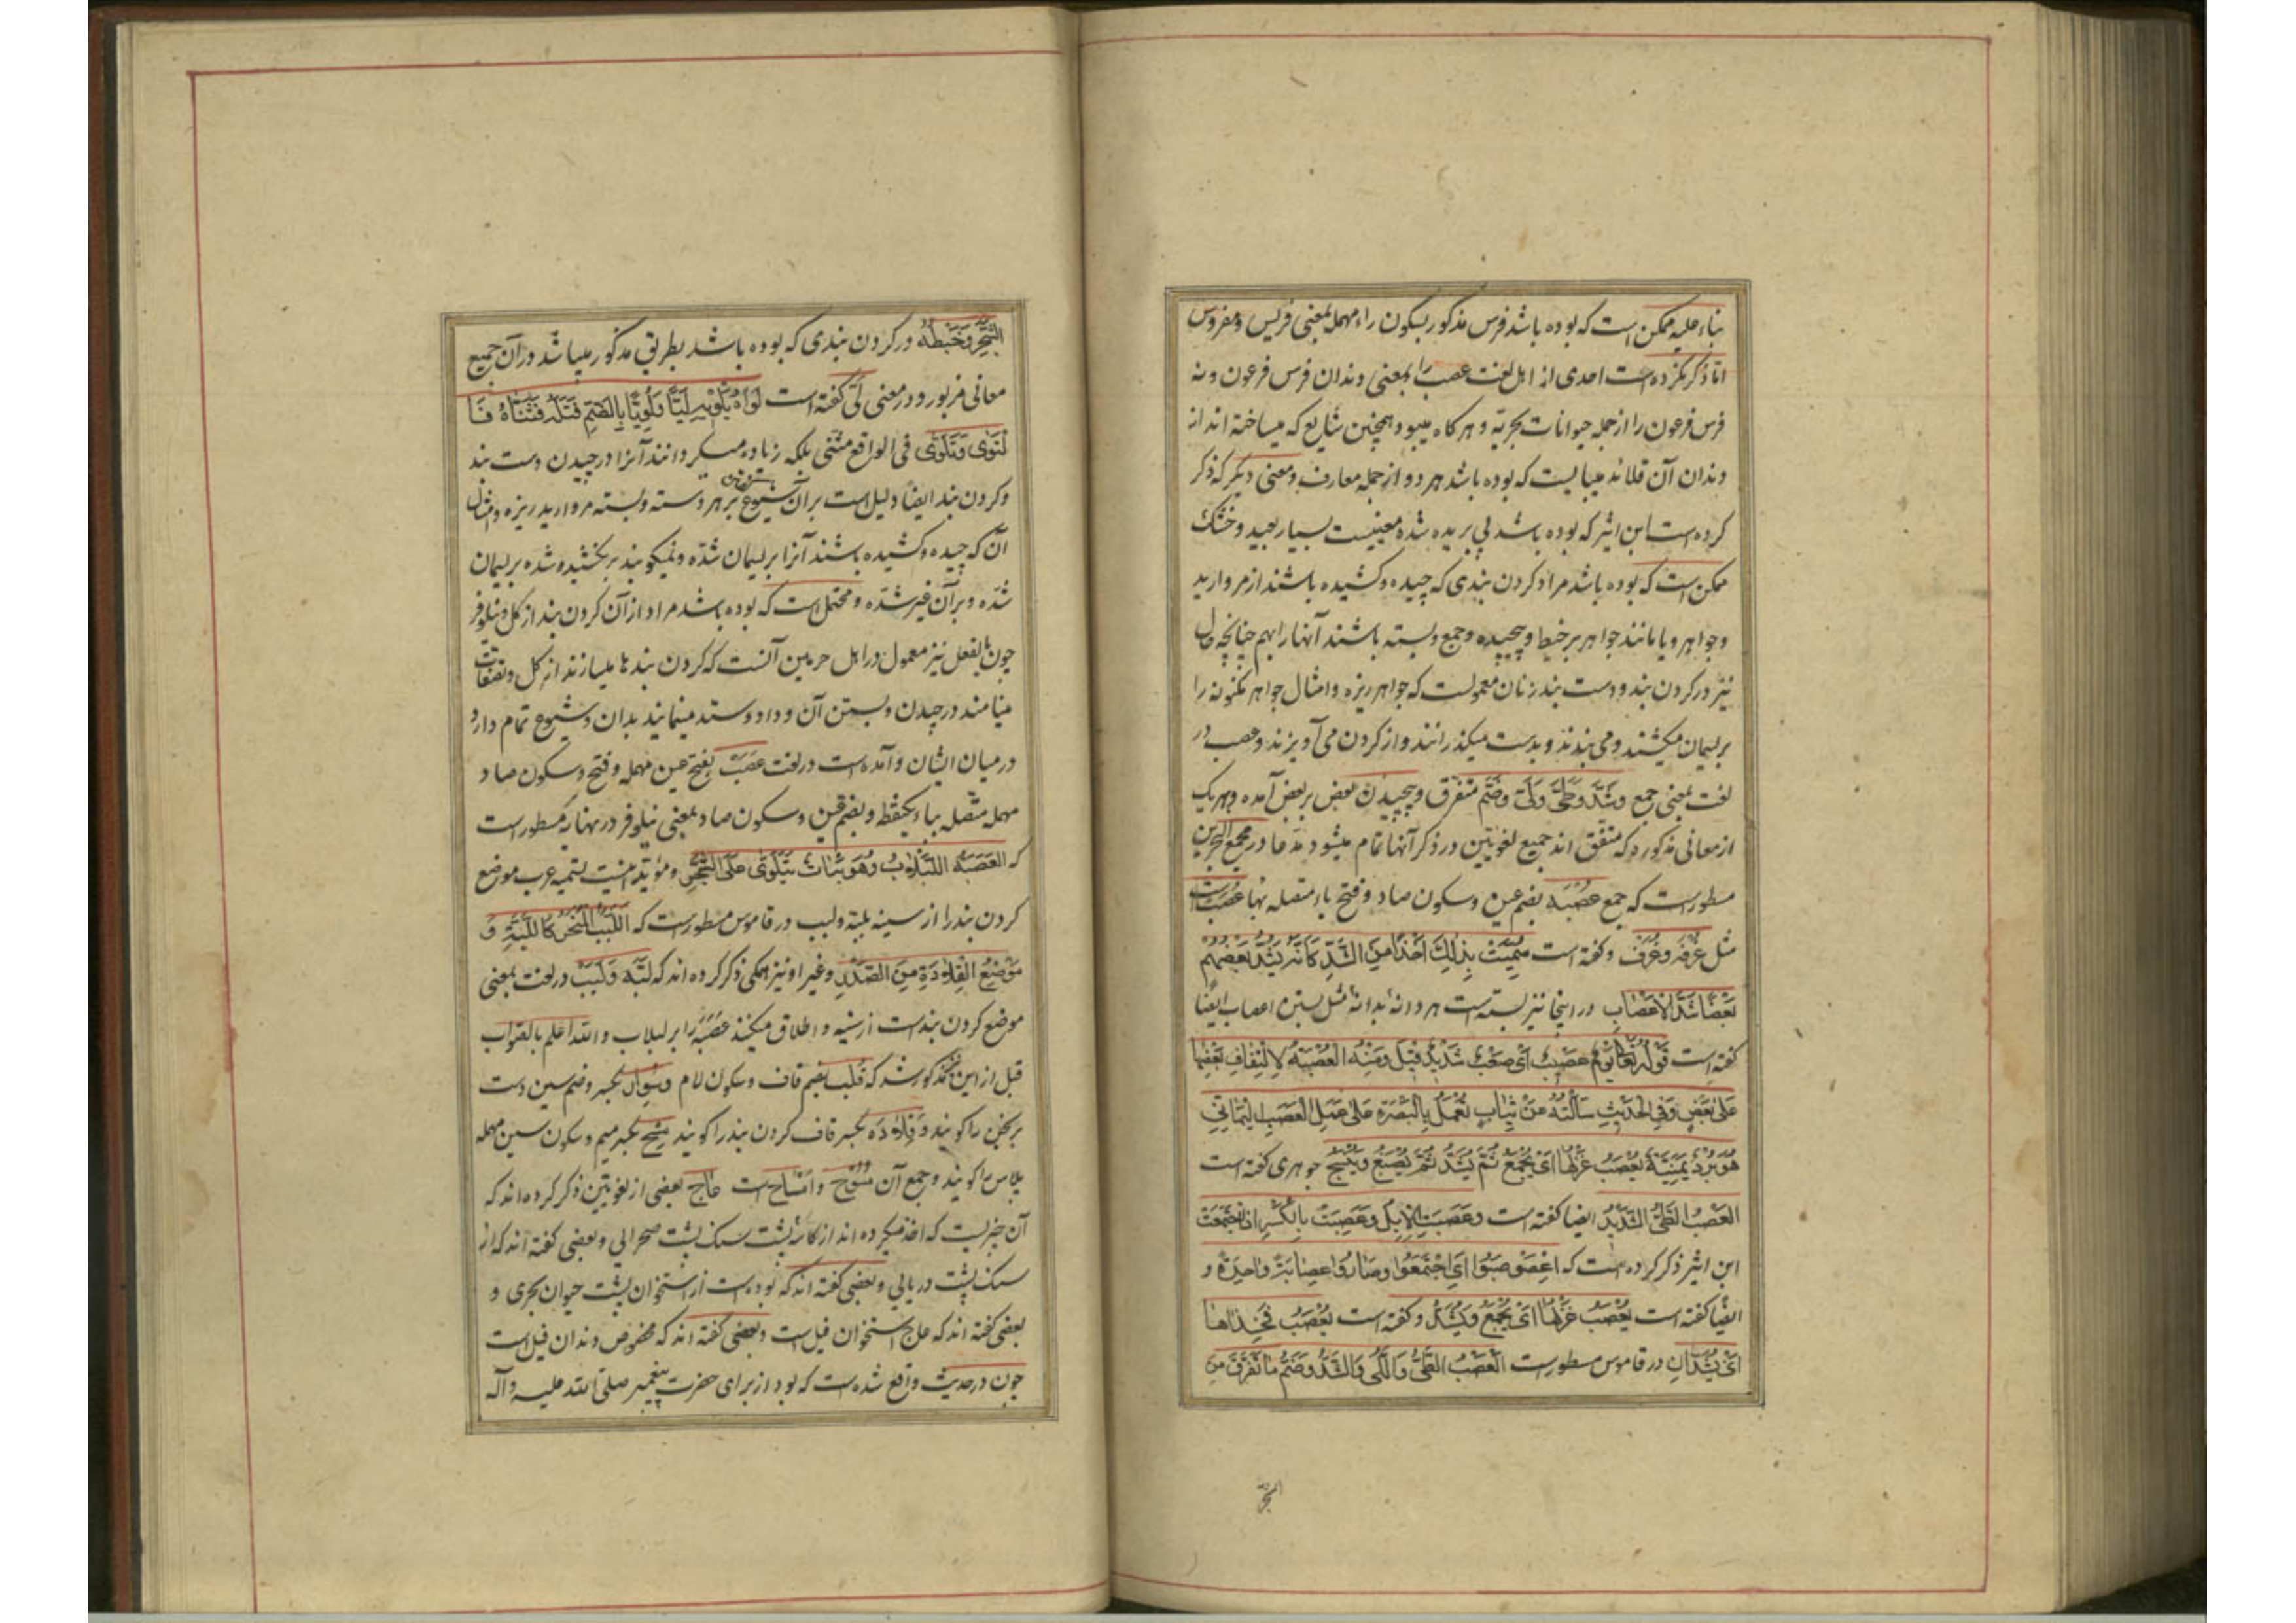 بناء علیه ممکن است که بوده باشد فرس مذکور بسکون راء مهمله بمعنی فریس و مفروس
اما ذکر نکرده است احدی از اهل لغت عصب را بمعنی دندان فرس فرعون و نه
فرس فرعون را از جمله حیوانات بحریّه و هر کاه میبود همچنین شایع که میساخته اند از
دندان آن قلاند میبایست که بوده باشد هر دو از جمله معارف و معنی دیگر که ذکر
کرده است ابن اثیر که بوده باشد پی بریده شده معنیست بسیار بعید و خشک
ممکن است که بوده باشد مراد کردن بندی که چیده و کشیده باشند از مروارید
و جواهر و یا مانند جواهر بر خیط و پیچیده و جمع و بسته باشند آنها را بهم چنانچه حال
نیز در کردن بند و دست بند زنان معمولست که جواهر ریزه و امثال جواهر مکنونه را
بریسمان میکشند و می بندند و بدست میکذرانند و از کردن می آویزند و عصب در
لغت بمعنی جمع و شَدّ و طَیّ و لَیّ و ضَمّ متفرق و پیچیدن بعض بر بعض آمده و هر یک
از معانی مذکوره که متفق اند جمیع لغویّین در ذکر آنها تمام میشود مدّعا در مجمع البحرین
مسطور است که جمع عُصْبَه بضم عین و سکون صاد و فتح باء متصله بها عُصَب است
مثل غُرفه و غُرَف و کفته است سُمِّیَتْ بِذٰلِکَ اَخْذًا مِنَ الشَّدِّ کَاَنَّهُ یَشُدُّ بَعْضُهُمْ
بَعْضًا شَدَّ الْاَعْصَابِ در اینجا نیز بسته است هر دانه بدانه مثل بستن اعصاب ایضا
کفته است قَوْلُهُ تَعَالٰی یَوْمٌ عَصِیْبٌ اَیْ صَعْبٌ شَدِیْدٌ قِیْلَ وَمِنْهُ الْعُصْبَهُ لِاِلْتِفَافِ بَعْضِهَا
عَلٰی بَعْضٍ وَفِی الْحَدِیْثِ سَأَلْتُهُ عَنْ ثِیَابٍ تُعْمَلُ بِالْبَصْرَهِ عَلٰی عَمَلِ الْعَصَبِ الْیَمَانِیِّ
هُوَ بُرْدٌ یَمَنِیَّهٌ یُعْصَبُ غَزْلُهَا اَیْ یُجْمَعُ ثُمَّ یُشَدُّ ثُمَّ یُصْبَغُ وَیُنْسَجُ جوهری کفته است
الْعَصْبُ الطَّیُّ الشَّدِیْدُ ایضا کفته است وَعَصَبَتِ الْاِبِلُ وَعَصِبَتْ بِالْکَسْرِ اِذَا اجْتَمَعَتْ
ابن اثیر ذکر کرده است که اِعْصَوْصَبُوْا اَیِ اجْتَمَعُوْا وَصَارُوْا عِصَابَهً وَاحِدَهً و
ایضًا کفته است یُعْصَبُ غَزْلُهَا اَیْ یُجْمَعُ وَیُشَدُّ و کفته است یُعْصَبُ فَخِذَاهَا
اَیْ یُشَدَّانِ در قاموس مسطور است الْعَصْبُ الطَّیُّ وَاللَّیُّ وَالشَّدُّ وَضَمُّ مَا تَفَرَّقَ مِنَ
الشجر وَخَبْطُهُ در کردن بندی که بوده باشد بطریق مذکور میباشد در آن جمیع
معانی مزبوره و در معنی لَیّ کفته است لَوَاهُ یَلْوِیْهِ لَیًّا وَلُوِیًّا بِالضَّمِّ فَتَلَهُ فَثَنَاهُ فَا
لْتَوٰی وَتَلَوّٰی فی الواقع مثنی بلکه زیاده میکردانند آنرا در چیدن دست بند
و کردن بند ایضا دلیل است بر آن شیوع بر هر دسته و بسته مروارید ریزه و امثال
آن که چیده و کشیده باشند آنرا بریسمان شدّه و نمیکویند بر نخشیده شده بریسمان
شدّه و بر آن غیر شدّه و محتمل است که بوده باشد مراد از آن کردن بند از کل و نیلوفر
چون بالفعل نیز معمول در اهل حرمین آنست که کردن بند ها میسازند از کل و
مینامند در چیدن و بستن آن و داد و ستد مینمایند بدان و شیوع تمام دارد
در میان ایشان و آمده است در لغت عصب بفتح عین مهمله و فتح و سکون صاد
مهمله متصله بباء یکنقطه و بضم عین و سکون صاد بمعنی نیلوفر در نهایه مسطور است
که الْعَصَبَهُ اللَّبْلَابُ وَهُوَ نَبَاتٌ یَتَلَوّٰی عَلَی الشَّجَرِ و مؤید اینست تسمیه عرب موضع
کردن بند را از سینه بلبّه و لبب در قاموس مسطور است که اللَّبَبُ الْمَنْحَرُ کَاللَّبَّهِ وَ
مَوْضِعُ الْقِلَادَهِ مِنَ الصَّدْرِ و غیر او نیز همکی ذکر کرده اند که لَبَّه وَلَبَب در لغت بمعنی
موضع کردن بند است از سینه و اطلاق میکنند عَصَبَه را بر لبلاب و الله اعلم بالصواب
قبل از این مذکور شد که قُلْب بضم قاف و سکون لام و سِوار بکسر و ضم سین دست
برنجن را کویند و قِلَادَه بکسر قاف کردن بند را کویند مِسْح بکسر میم و سکون سین مهمله
پلاس را کویند و جمع آن مُسُوْح و اَمْسَاح است عاج بعضی از لغویّین ذکر کرده اند که
آن چیزیست که اخذ میکرده اند از کاسه پشت سنک پشت صحرایی و بعضی کفته اند که از
سنک پشت دریایی و بعضی کفته اند که بوده است از استخوان پشت حیوان بحری و
بعضی کفته اند که عاج استخوان فیل است و بعضی کفته اند که مخصوص دندان فیل است
چون در حدیث واقع شده است که بود از برای حضرت پیغمبر صلی الله علیه و آله